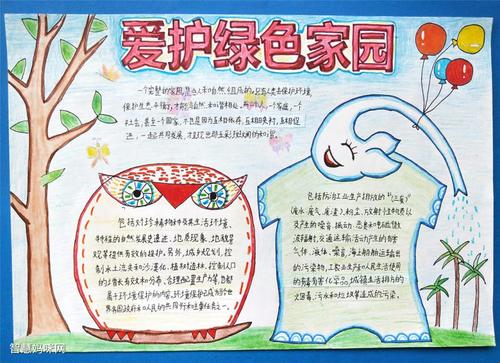 爱护绿色家园
一个完整的家园,是由人和自然组成的,只有人类去保护环境,
保护生态平衡,才能与自然和谐相处。一个人,一个家庭,一个
社会,甚至一个国家,不也是因为互相依存,互相映衬,互相促
进,一起共同发展,才
包括对珍稀物种及其生活环境、
特殊的自然发展史遗迹、地质现象、地貌景
观等提供有效的保护。另外,城乡规划,控
制水土流失和沙漠化、植树造林、控制人口
的增长和分布、合理配置生产力等,都
属于环境保护的内容。环境保护已成为当今世
界各国政府和人民的共同行动和主要任务之一。
包括防治工业生产排放的"三废"
(废水、废气、废渣)、粉尘、放射性物质以
及产生的噪音、振动、恶臭和电磁微
波辐射,交通运输活动产生的有害
气体、液体、噪音,海上船舶运输排
出的污染物,工农业生产和人民生活使用
的有毒有害化学品,城镇生活排放的
烟尘、污水和垃圾等造成的污染。
智慧妈咪网